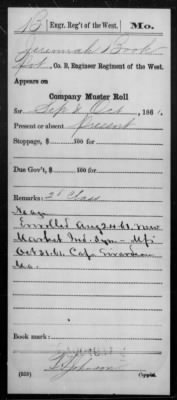 B | Engr. Reg't of the West. | Mo.
Jeremiah Book
Co. B, Engineer Regiment of the West.
Appears on
Company Muster Roll
for Sept & Oct, 1861.
Present or absent Present
Stoppage, $ 100 for
Due Gov't, $ 100 for
Remarks: 2d Class
Enrolled Aug 24 61. New
Market Ind.
Oct 31. 61. Cap
Mo.
Book mark:
Johnson
(358) Copyist.